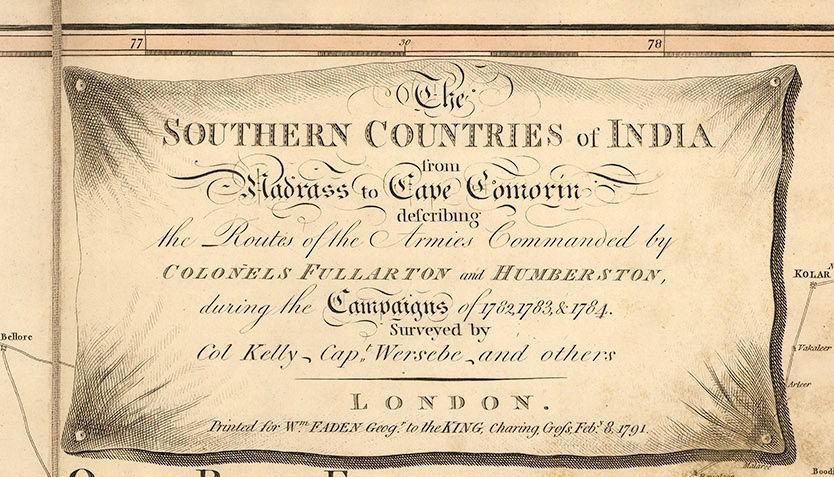 77 30 78
The
SOUTHERN COUNTRIES of INDIA
from
Madrass to Cape Comorin
describing
the Routes of the Armies Commanded by
COLONELS FULLARTON and HUMBERSTON,
during the Campaigns of 1782, 1783, & 1784.
Surveyed by
Col Kelly, Capt. Wersebe, and others
LONDON.
Printed for Wm. FADEN Geogr. to the KING, Charing Cross, Feby. 8, 1791.
KOLAR
Bellore
Vakaleer
Arleer